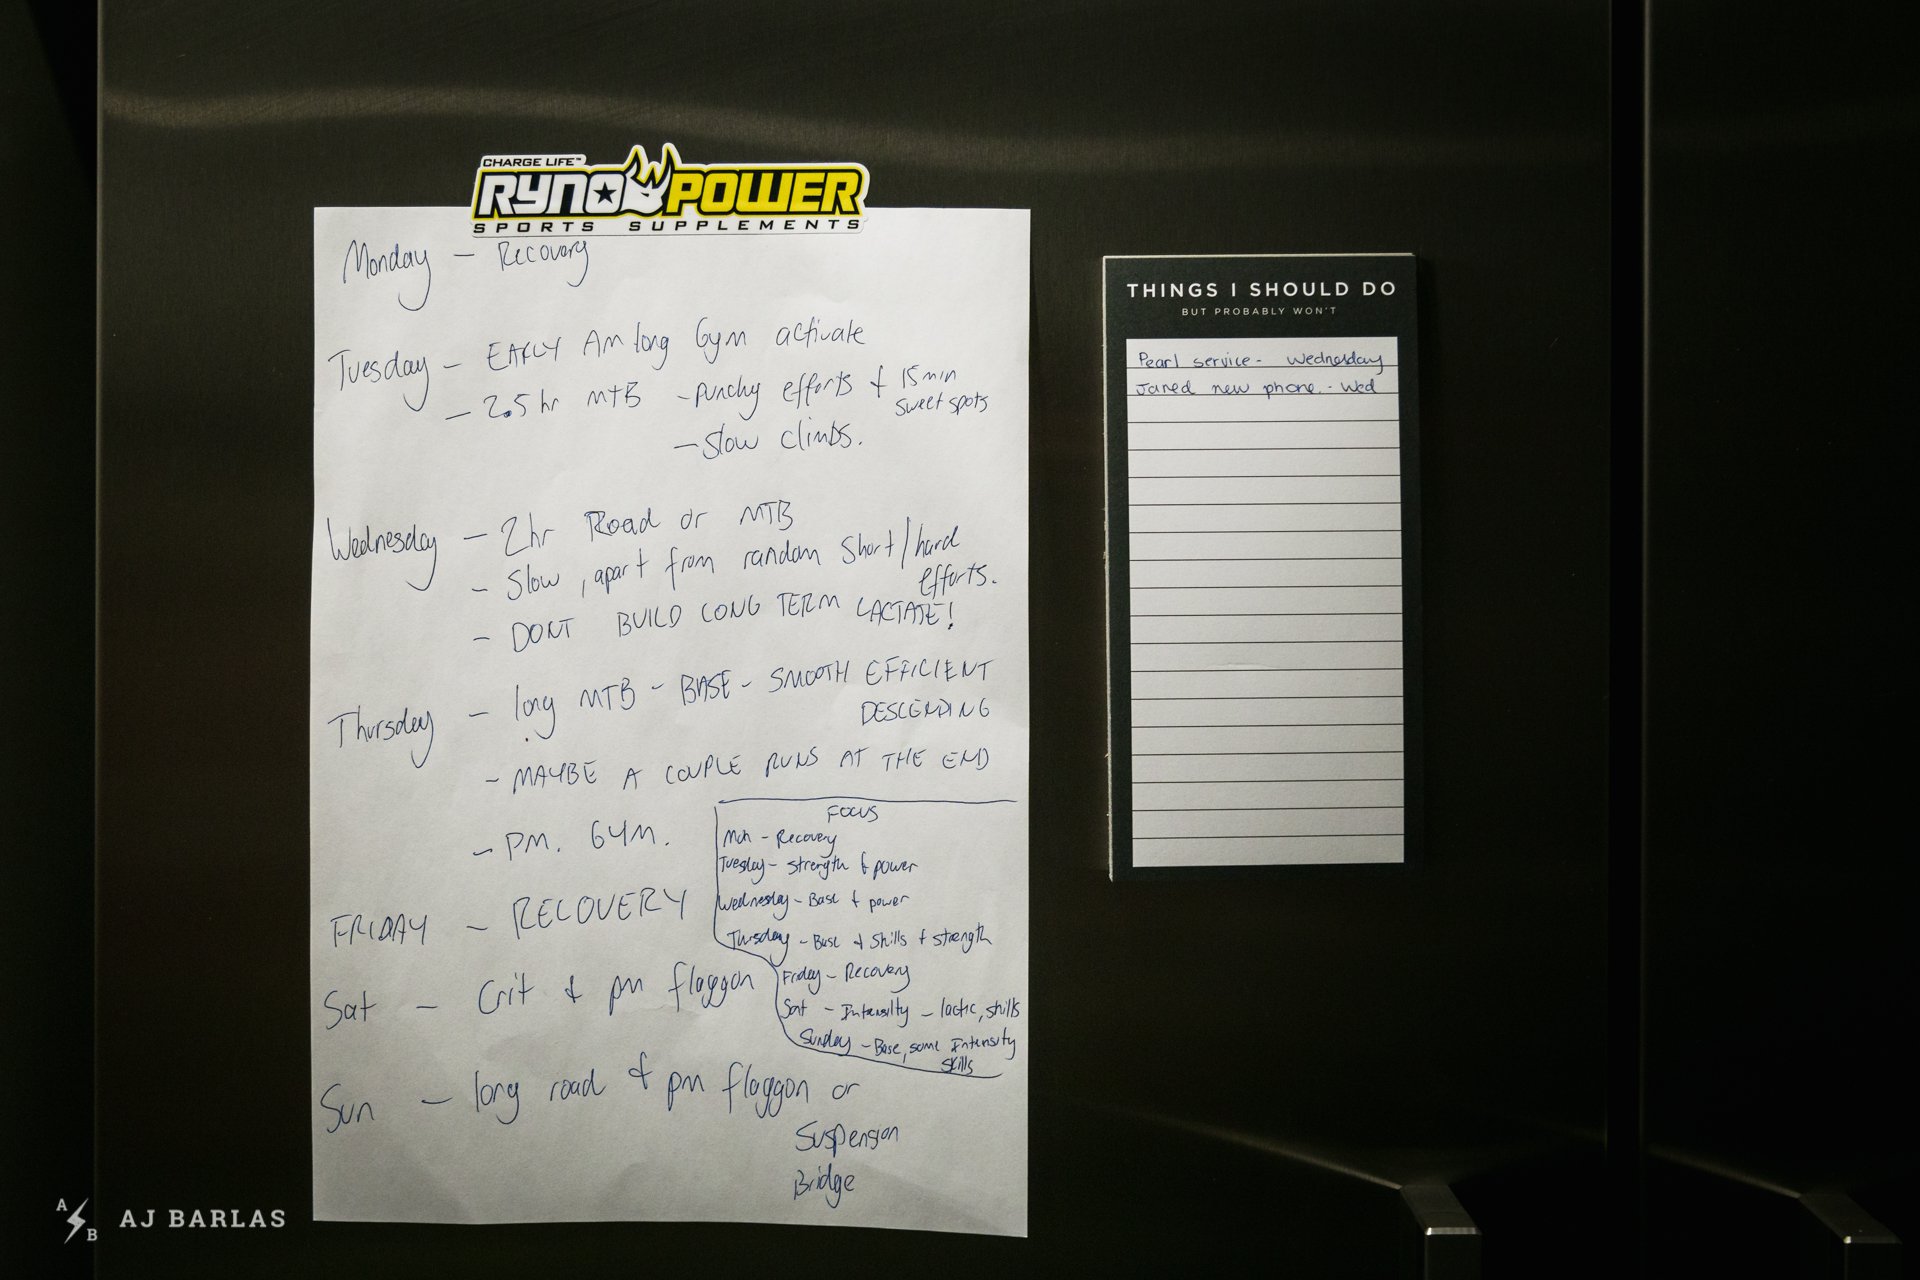 CHARGE LIFE™
RYNO POWER
SPORTS SUPPLEMENTS
Monday - Recovery
Tuesday - EARLY Am long Gym activate
- 2.5hr MTB - Punchy efforts & 15min
sweet spots
- Slow climbs.
Wednesday - 2hr Road or MTB
- Slow, apart from random short/hard
efforts.
- DONT BUILD LONG TERM LACTATE!
Thursday - long MTB - BASE - SMOOTH EFFICIENT
DESCENDING
- MAYBE A COUPLE RUNS AT THE END
- PM. GYM.
FRIDAY - RECOVERY
Sat - Crit & pm flaggon
Sun - long road & pm flaggon or
Suspension
Bridge
FOCUS
Mon - Recovery
Tuesday - strength & power
Wednesday - Base & power
Thursday - Base & skills & strength
Friday - Recovery
Sat - Intensilty - lactic, skills
Sunday - Base, some Intensity
skills
THINGS I SHOULD DO
BUT PROBABLY WON'T
Pearl service - Wednesday
Jared new phone. - Wed
A B
AJ BARLAS